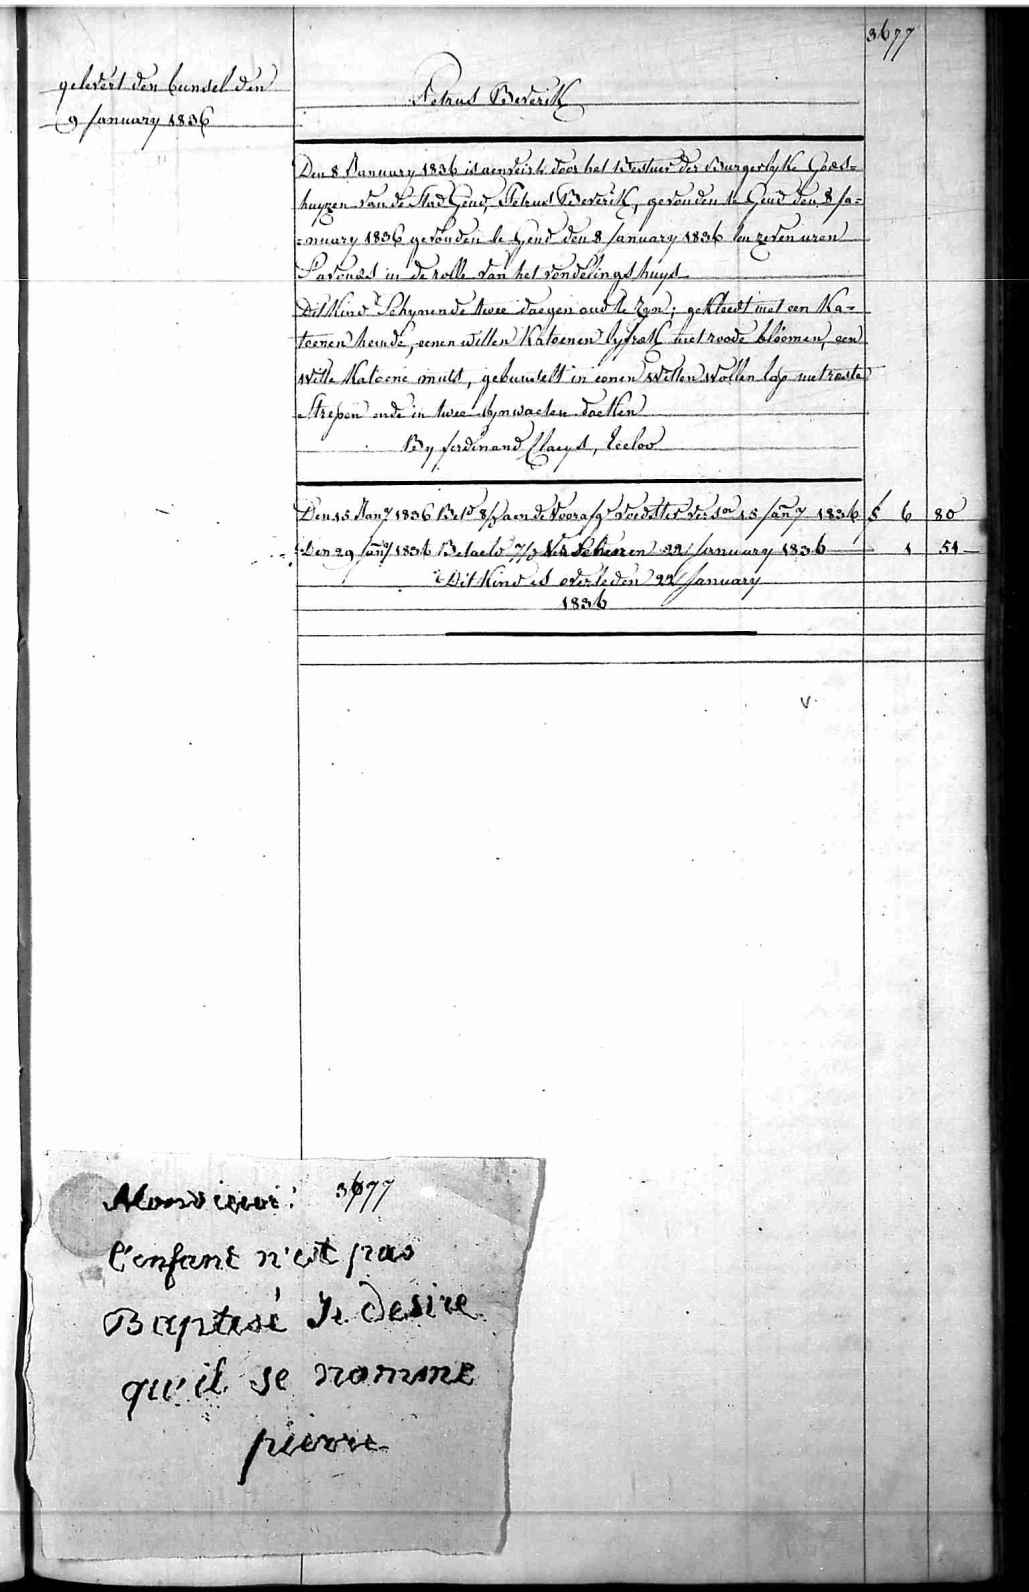 3677
gelevert den bunsel den
9 January 1836
Petrus Beverik
Den 8 January 1836 is aenveirt door het Bestuer der Burgerlyke Goes-
huyzen van de Stad Gend, Petrus Beverik, gevonden te Gend den 8 Ja-
=nuary 1836 gevonden te Gend den 8 January 1836 ten zeven uren
S'avonds in de rolle van het vondelingshuys
Dit Kind Schynende twee daegen oud te zyn; gekleedt met een Ka-
toenen hemde, eenen witten Katoenen lyfrok met roode bloomen, een
witte Katoene muts, gebunselt in eenen witten wollen lap met
Strepen ende in twee lynwaeten doeken
By ferdinand Claeys, Eecloo
Den 15 Jany 1836 Bet.d 8/ aen de voorafg.e voedster 15 Jany 1836 f 6 80
Den 29 Jany 1836 Betaeld 7/ 22 January 1836 1 51
Dit Kind is overleden 22 January
1836
Monsieur: 3677
l'enfant n'est pas
Baptisé Je desire
qu'il se nomme
pierre